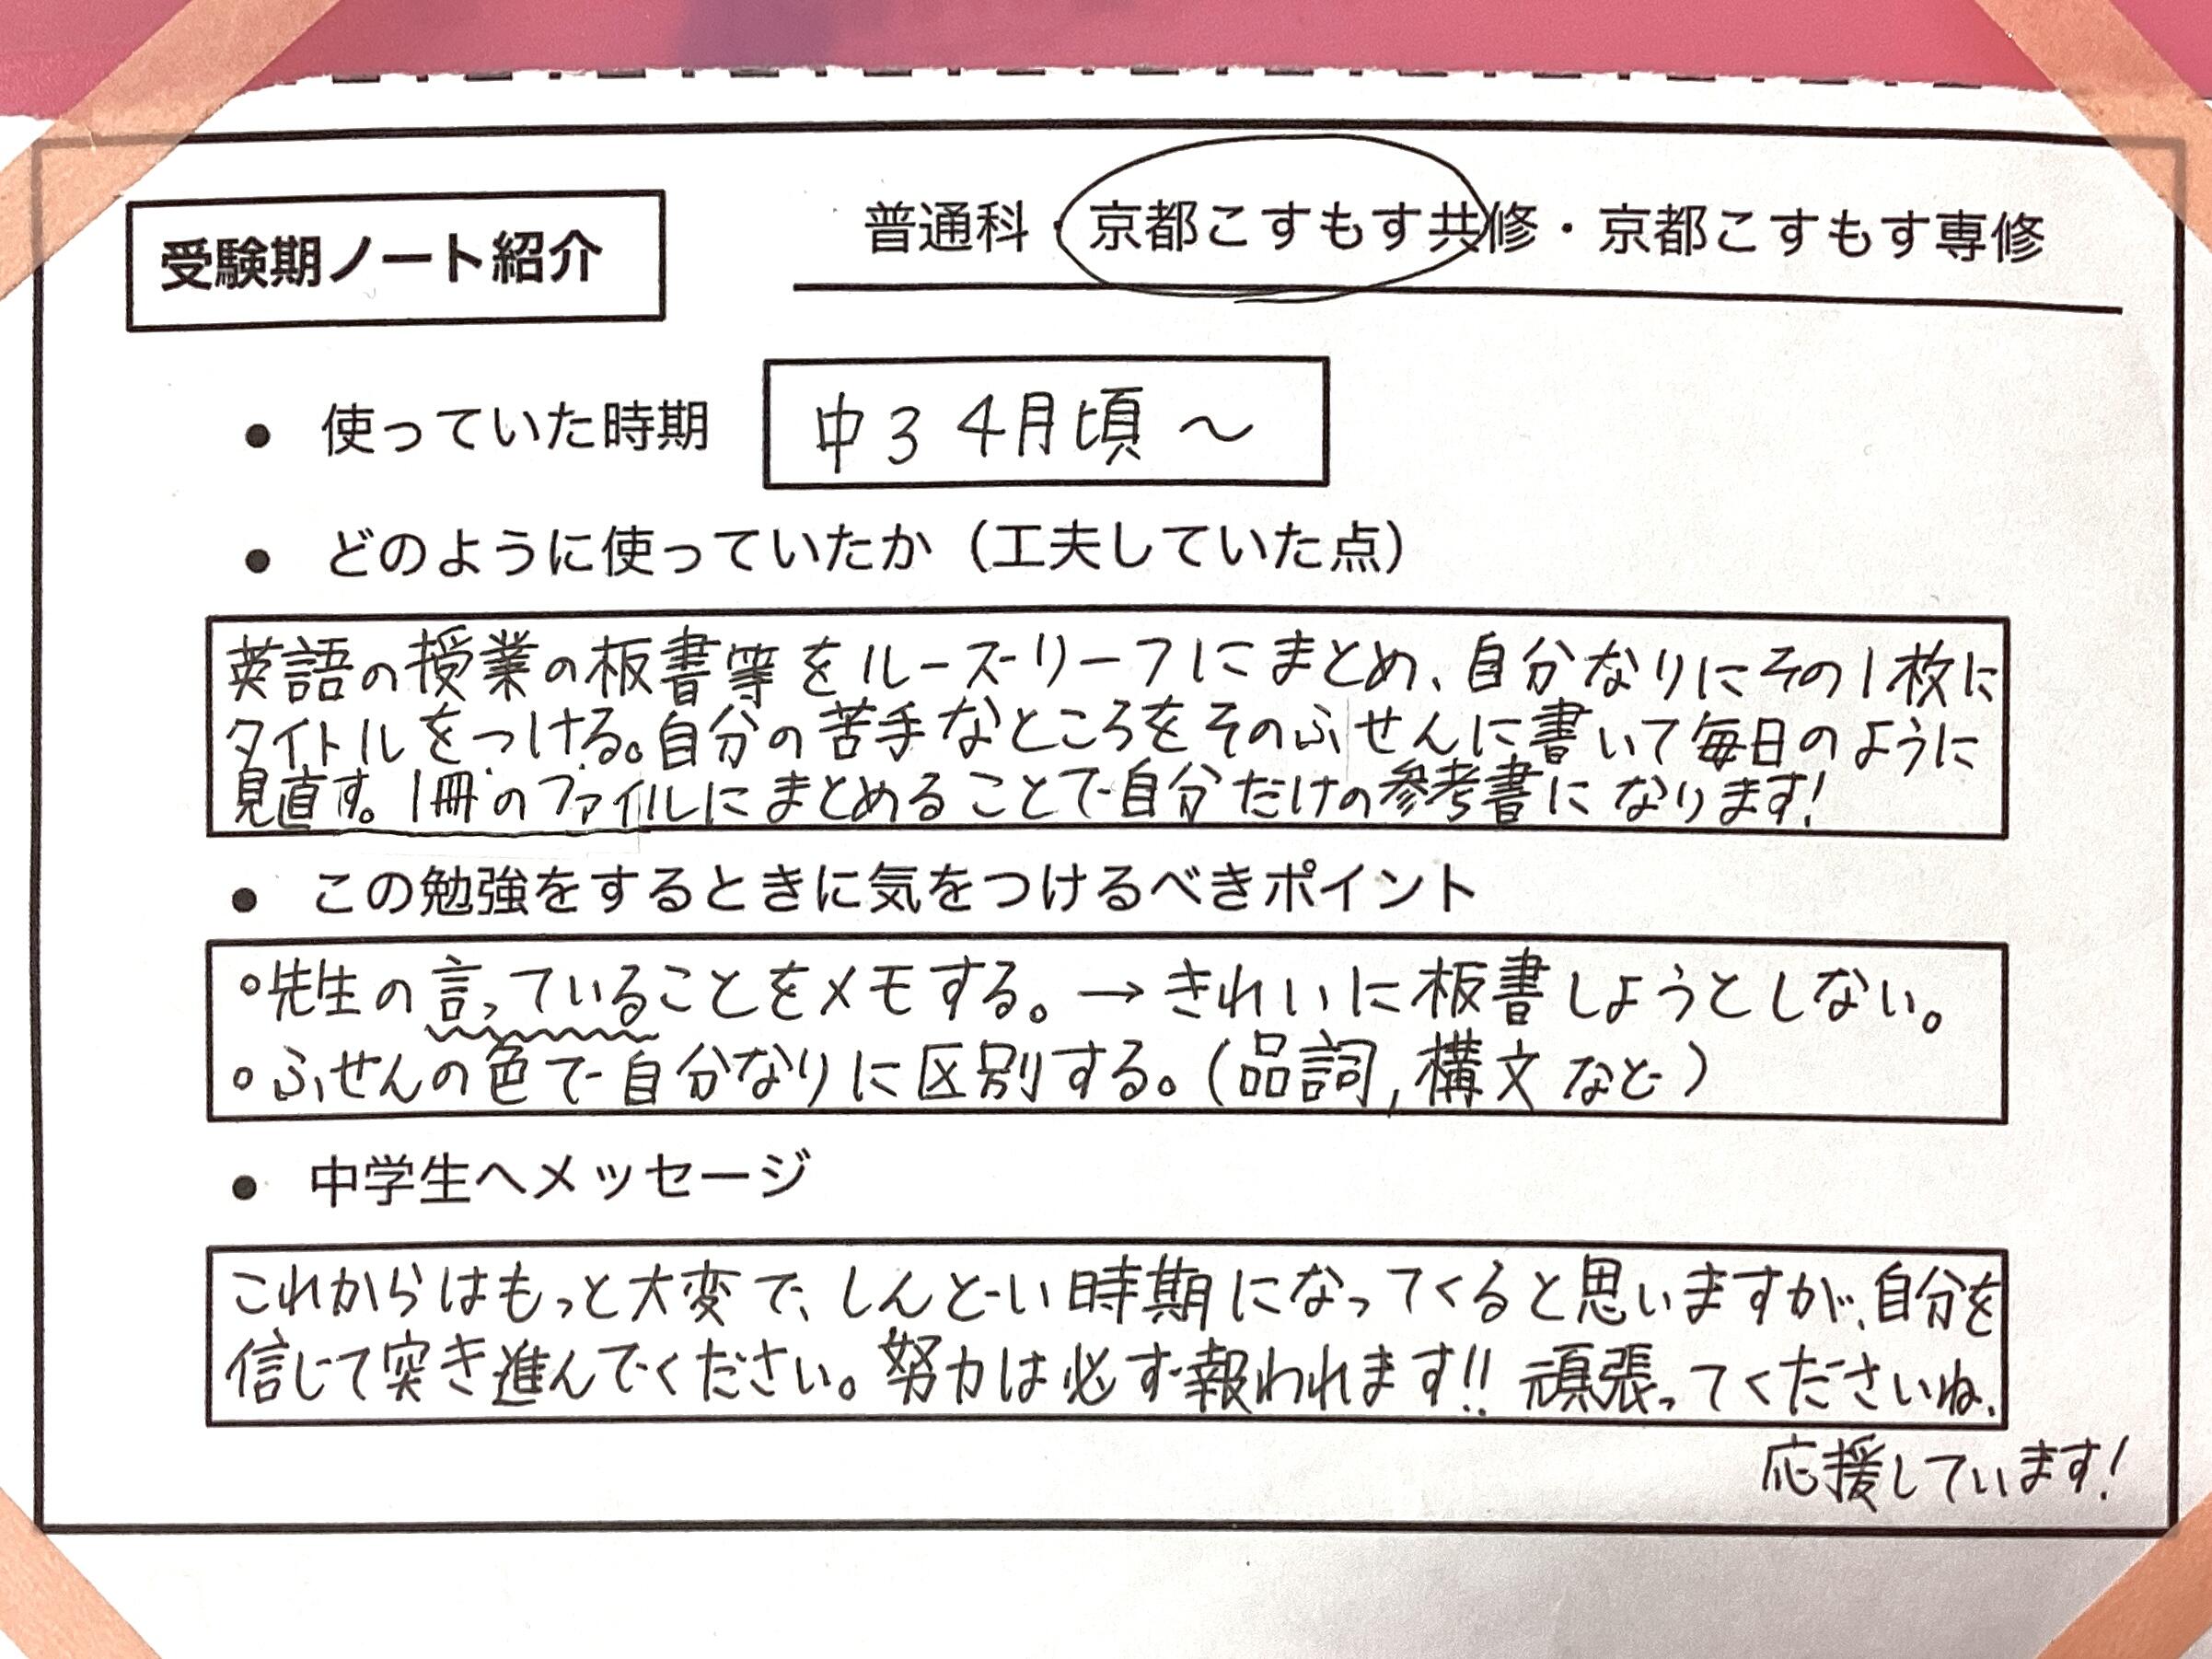 受験期ノート紹介
普通科・京都こすもす共修・京都こすもす専修
● 使っていた時期
中3 4月頃 〜
● どのように使っていたか（工夫していた点）
英語の授業の板書等をルーズリーフにまとめ、自分なりにその1枚に
タイトルをつける。自分の苦手なところをそのふせんに書いて毎日のように
見直す。1冊のファイルにまとめることで自分だけの参考書になります!
● この勉強をするときに気をつけるべきポイント
◦先生の言っていることをメモする。→きれいに板書しようとしない。
◦ふせんの色で自分なりに区別する。(品詞,構文など)
● 中学生へメッセージ
これからはもっと大変で、しんどい時期になってくると思いますが、自分を
信じて突き進んでください。努力は必ず報われます!! 頑張ってくださいね、
応援しています!